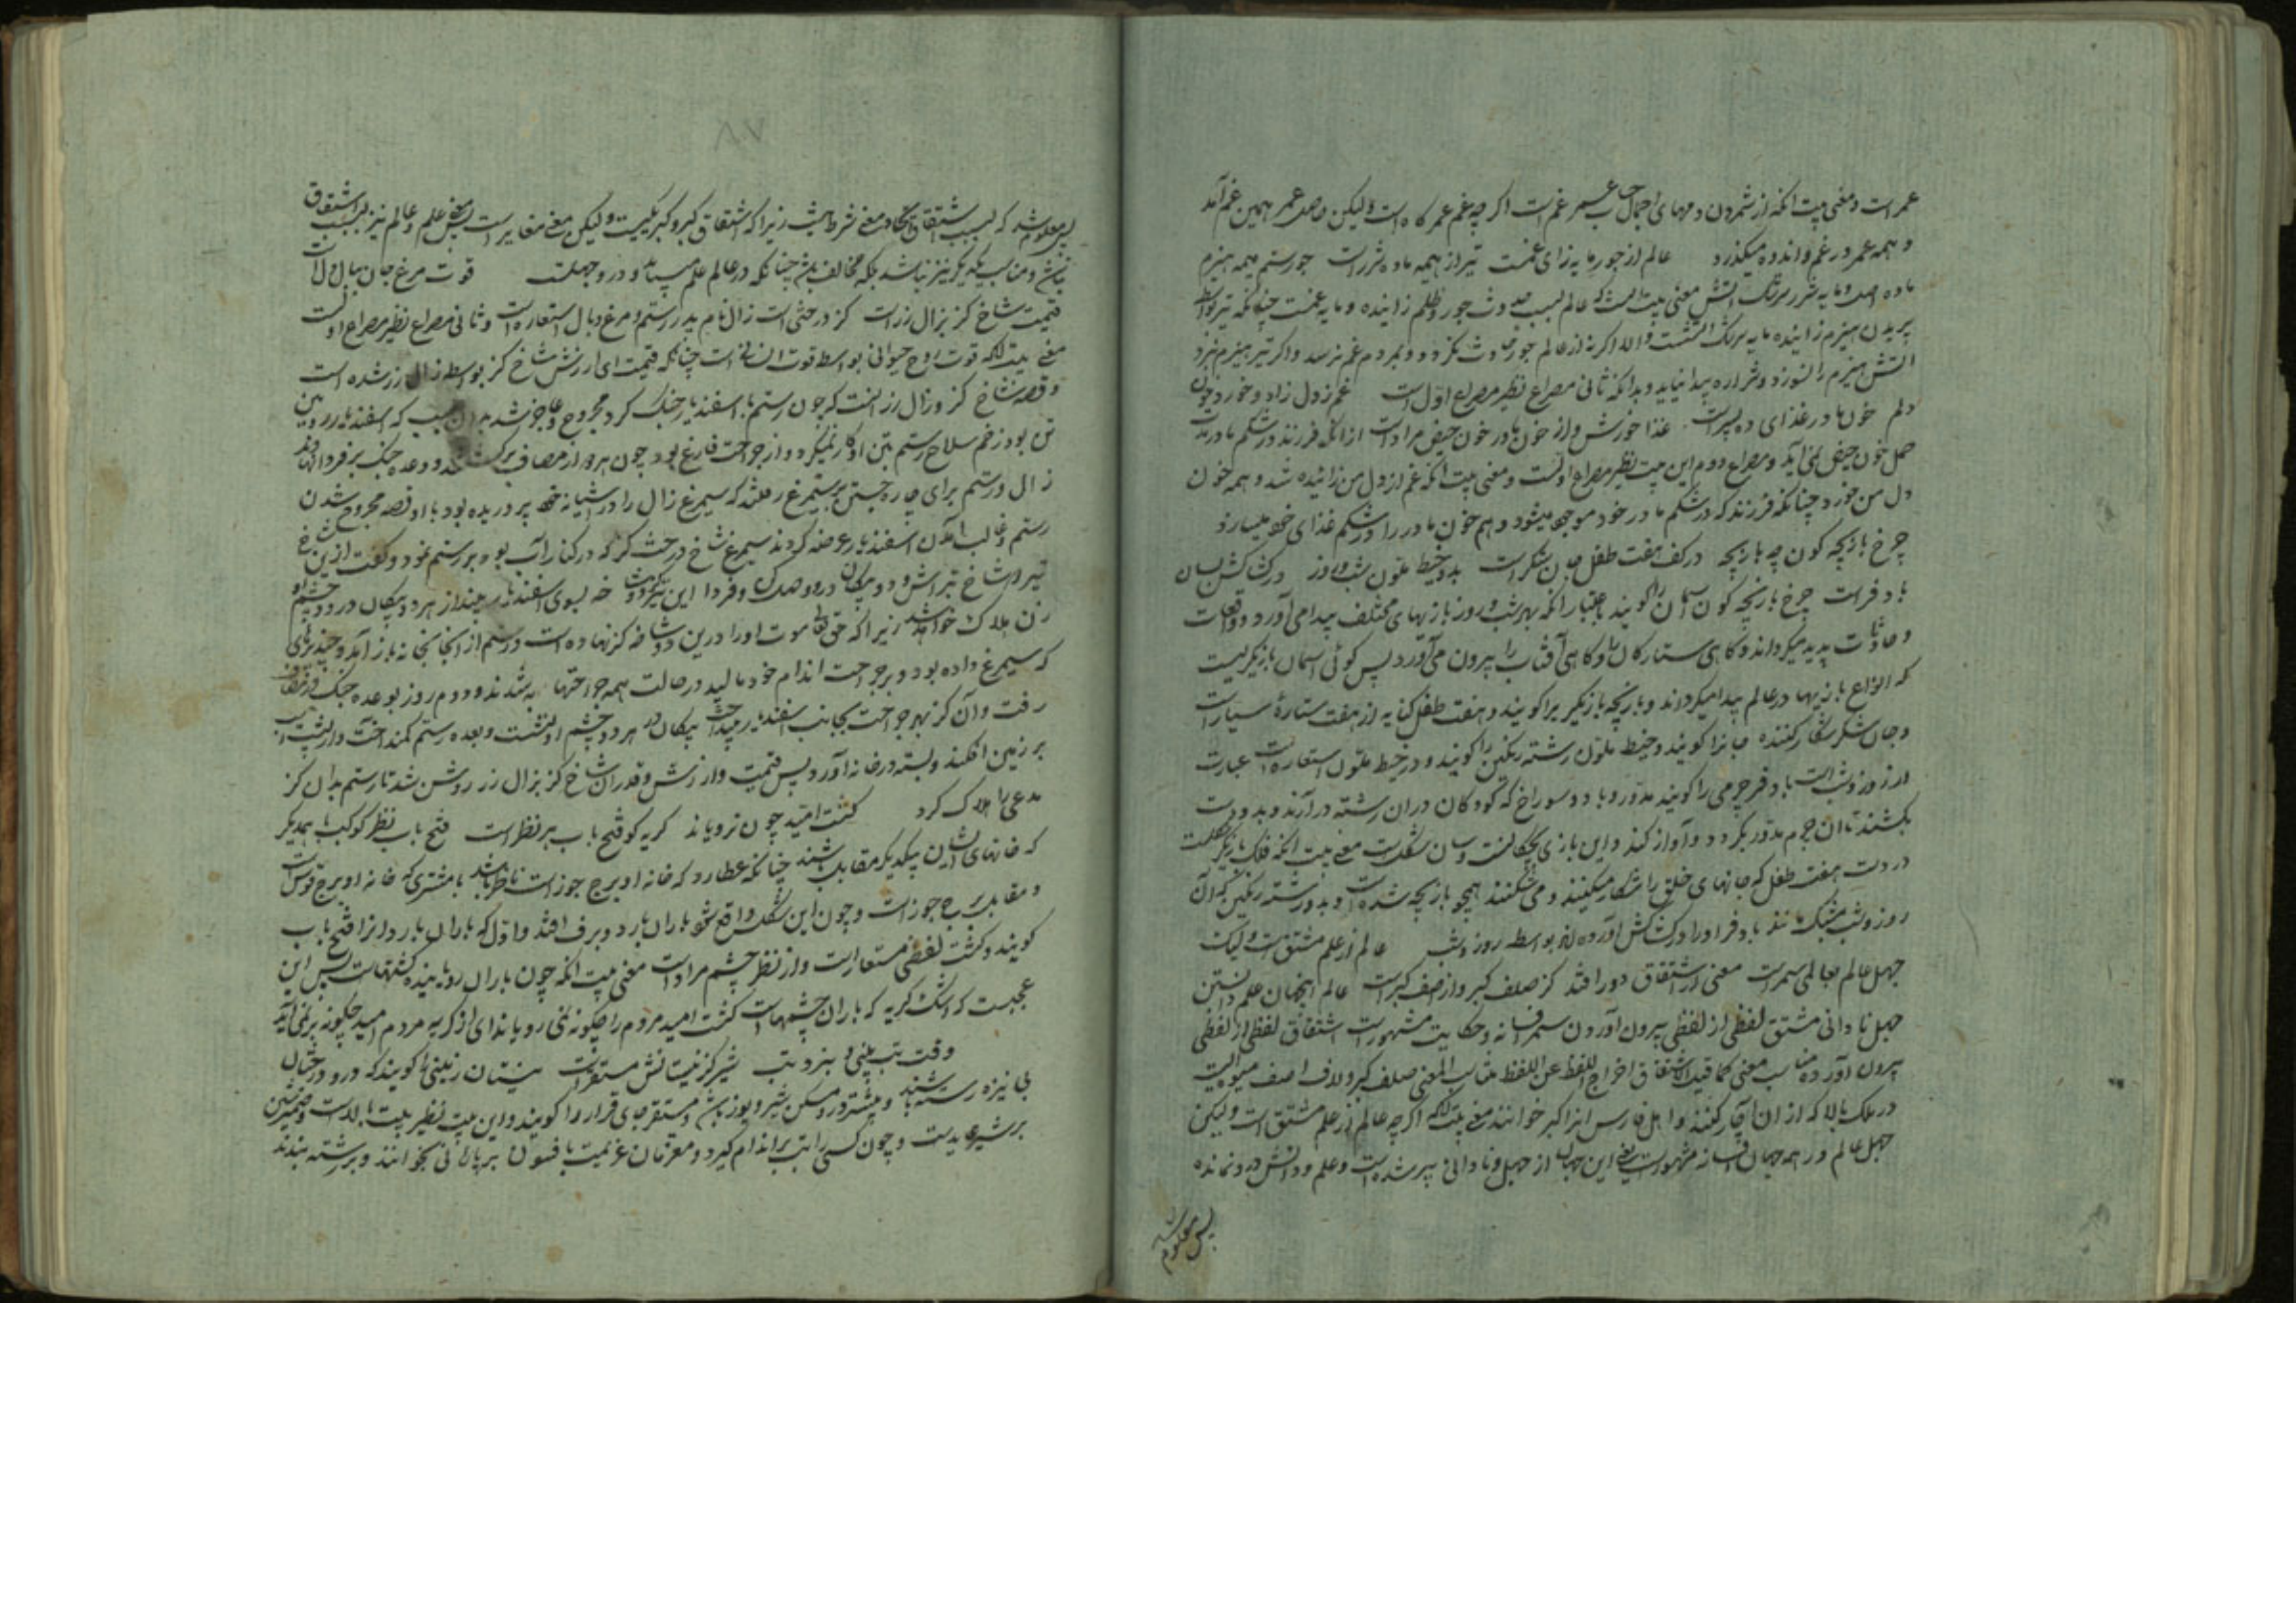 عمرست و معنی بیت آنکه از شمردن دمهای اجمال حساب عمر غم است اگرچه غم عمر کاه است ولیکن حاصل عمر همین غم آمد
و همه عمر در غم و اندوه میگذرد عالم از جور مایه زای غمست تیر از همه ماده شررست جور ستم همه هیزم
ماده اصل و مایه شرر سرشک آتش معنی بیت آنست که عالم بسبب حدوث جور و ظلم زاینده و مایه غمست چنانکه تبر بواسطه
بریدن هیزم زاینده مایه سرشک آتشست والا اگر نه از عالم جور حادث نگردد و بمردم غم نرسد و اگر تبر هیزم نبرد
آتش هیزم را نسوزد و شراره پیدا نیاید و بدانکه ثانی مصراع نظیر مصراع اول است غم ز دل زاد و خورد خون
دلم خون مادر غذای ده پسرست غذا خورش و از خون مادر خون حیض مرادست از آنکه فرزند در شکم مادر مدت
حمل خون حیض نمی آید و مصراع دوم این بیت نظیر مصراع اولست و معنی بیت آنکه غم از دل من زائیده شد و همه خون
دل من خورد چنانکه فرزند که در شکم مادر خود موجود میشود و هم خون مادر را در شکم غذای خود میسازد
چرخ بازیچه گون چه بازیچه در کف هفت طفل جان شکرست بدو خیط ملون شب و روز در کشاکش بسان
بادفرست چرخ بازیچه گون آسمان را گویند باعتبار آنکه بهر شب و روز بازیهای مختلف پیدا می آورد و واقعات
و حادثات پدید میگرداند و گاهی ستارگان را و گاهی آفتاب را بیرون می آورد پس گوئی آسمان بازیگریست
که انواع بازیها در عالم پیدا میگرداند و بازیچه بازیگر را گویند و هفت طفل کنایه از هفت ستارهٔ سیارات
و جان شکر شکار کننده جانرا گویند و خیط ملون رشته رنگین را گویند و در خیط ملون استعاره است عبارت
از روز و شب است بادفر چرمی را گویند مدور و با دو سوراخ که کودکان در آن رشته در آرند و بدو دست
بکشند تا آن چرم مدور بگردد و آواز کند و این بازی بچگانست و سان شکلست معنی بیت آنکه فلک بازیگر شکلت
در دست هفت طفل که جانهای خلق را شکار میکنند و می شکنند همچو بازیچه شده است و بدو رشته رنگین که آن
روز و شب مشبک مانند بادفر او را در کشاکش آورده اند بواسطه روز و شب عالم از علم مشتق است ولیک
جهل عالم بعالمی سمرست معنی از اشتقاق دور افتد کز صلف کبر و از اصف کبرست عالم اینجهان علم دانستن
جهل نادانی مشتق لفظی از لفظی بیرون آوردن سمر فسانه و حکایت مشهورست اشتقاق لفظی از لفظی
بیرون آورده مناسب معنی کما قیل الاشتقاق اخراج اللفظ عن اللفظ مناسب المعنی صلف کبر و لاف اصف میوه ایست
در ملک بالا که از آن آچار کنند و اهل فارس آنرا کبر خوانند معنی بیت آنکه اگرچه عالم از علم مشتق است ولیکن
جهل عالم در همه جهان فسانه مشهورست یعنی این جهان از جهل و نادانی پر شده است و علم و دانش درو نمانده
پس معلوم شد
پس معلوم شد که بسبب اشتقاق اتحاد معنی شرط نیست زیرا که اشتقاق کبر و کبر یکیست ولیکن معنی مغایرست پس معنی علم و عالم نیز بسبب اشتقاق
نباشد و مناسب یکدیگر نیز نباشد بلکه مخالف باشد چنانکه در عالم علم میباید و درو جهلست قوت مرغ جان ببال دل است
قیمت شاخ گز بزال زرست گز درختی است زال نام پدر رستم و مرغ و بال استعاره است و ثانی مصراع نظیر مصراع اولست
معنی بیت آنکه قوت روح حیوانی بواسطه قوت انسانی است چنانکه قیمت ای ارزش شاخ گز بواسطه زال زر شده است
و قصه شاخ گز و زال زر آنست که چون رستم با اسفندیار جنگ کرد مجروح و عاجز شد بدان سبب که اسفندیار رویین
تن بود زخم سلاح رستم بتن او کار نمیکرد و از جراحت فارغ بود چون هر دو از مصاف برگشتند و وعده جنگ بر فردا نهادند
زال و رستم برای چاره جستن بر سیمرغ رفتند که سیمرغ زال را در آشیانه خود پروریده بود با او قصه مجروح شدن
رستم و غالب آمدن اسفندیار عرضه کردند سیمرغ شاخ درخت گز که در کنار آب بود بر رستم نمود و گفت ازین شاخ
تیر دو شاخ تراش و دو پیکان درو وصل کن و فردا این تیر دو شاخه بسوی اسفندیار بینداز هر دو پیکان در دو چشم او
زن هلاک خواهد شد زیرا که حق تعالی موت او را درین دو شاخه گز نهاده است و رستم از آنجا بخانه باز آمد و چند پرهای
که سیمرغ داده بود و بر جراحت اندام خود مالید در حالت همه جراحتها به شدند و دوم روز بوعده جنگ در مصاف
رفت و آن گز بهر جراحت بجانب اسفندیار بینداخت پیکان در هر دو چشم او نشست و بعده رستم کمند انداخت و از پشت اسپ
بر زمین افکند و بسته در خانه آورد پس قیمت و ارزش و قدر آن شاخ گز بزال زر روشن شد تا رستم بدان گز
مدعی را هلاک کرد کشت امید چون نرویاند گریه کو فتح باب هر نظرست فتح باب نظر کوکب با همدیگر
که خانهای ایشان بیکدیگر مقابل باشند چنانکه عطارد که خانه او برج جوزاست ناظر باشد با مشتری که خانه او برج قوس است
و مقابل برج جوزاست و چون این شکل واقع شود باران بارد و برف افتد و اول که باران بارد آنرا فتح باب
گویند و کشت لفظی مستعارست و از نظر چشم مرادست معنی بیت آنکه چون باران رویاینده کشتهاست پس این
عجبست که اشک گریه که باران چشمهاست کشت امید مردم را چگونه نمی رویاند ای از گریه مردم امید چگونه بر نمی آید
وقت تب بنی و ببرد تب شیر کز نیستانش مستقرست نیستان زمینی را گویند که درو درختان
نی نیزه رسته باشند و بیشتر درو مسکن شیر و یوز باشد و مستقر جای قرار را گویند و این بیت نظیر بیت بالاست و ضمیر شین
بر شیر عایدست و چون کسی را تب بر اندام گیرد و معزمان عزیمت یا فسون بر پارهٔ نی بخوانند و بر رشته بندند